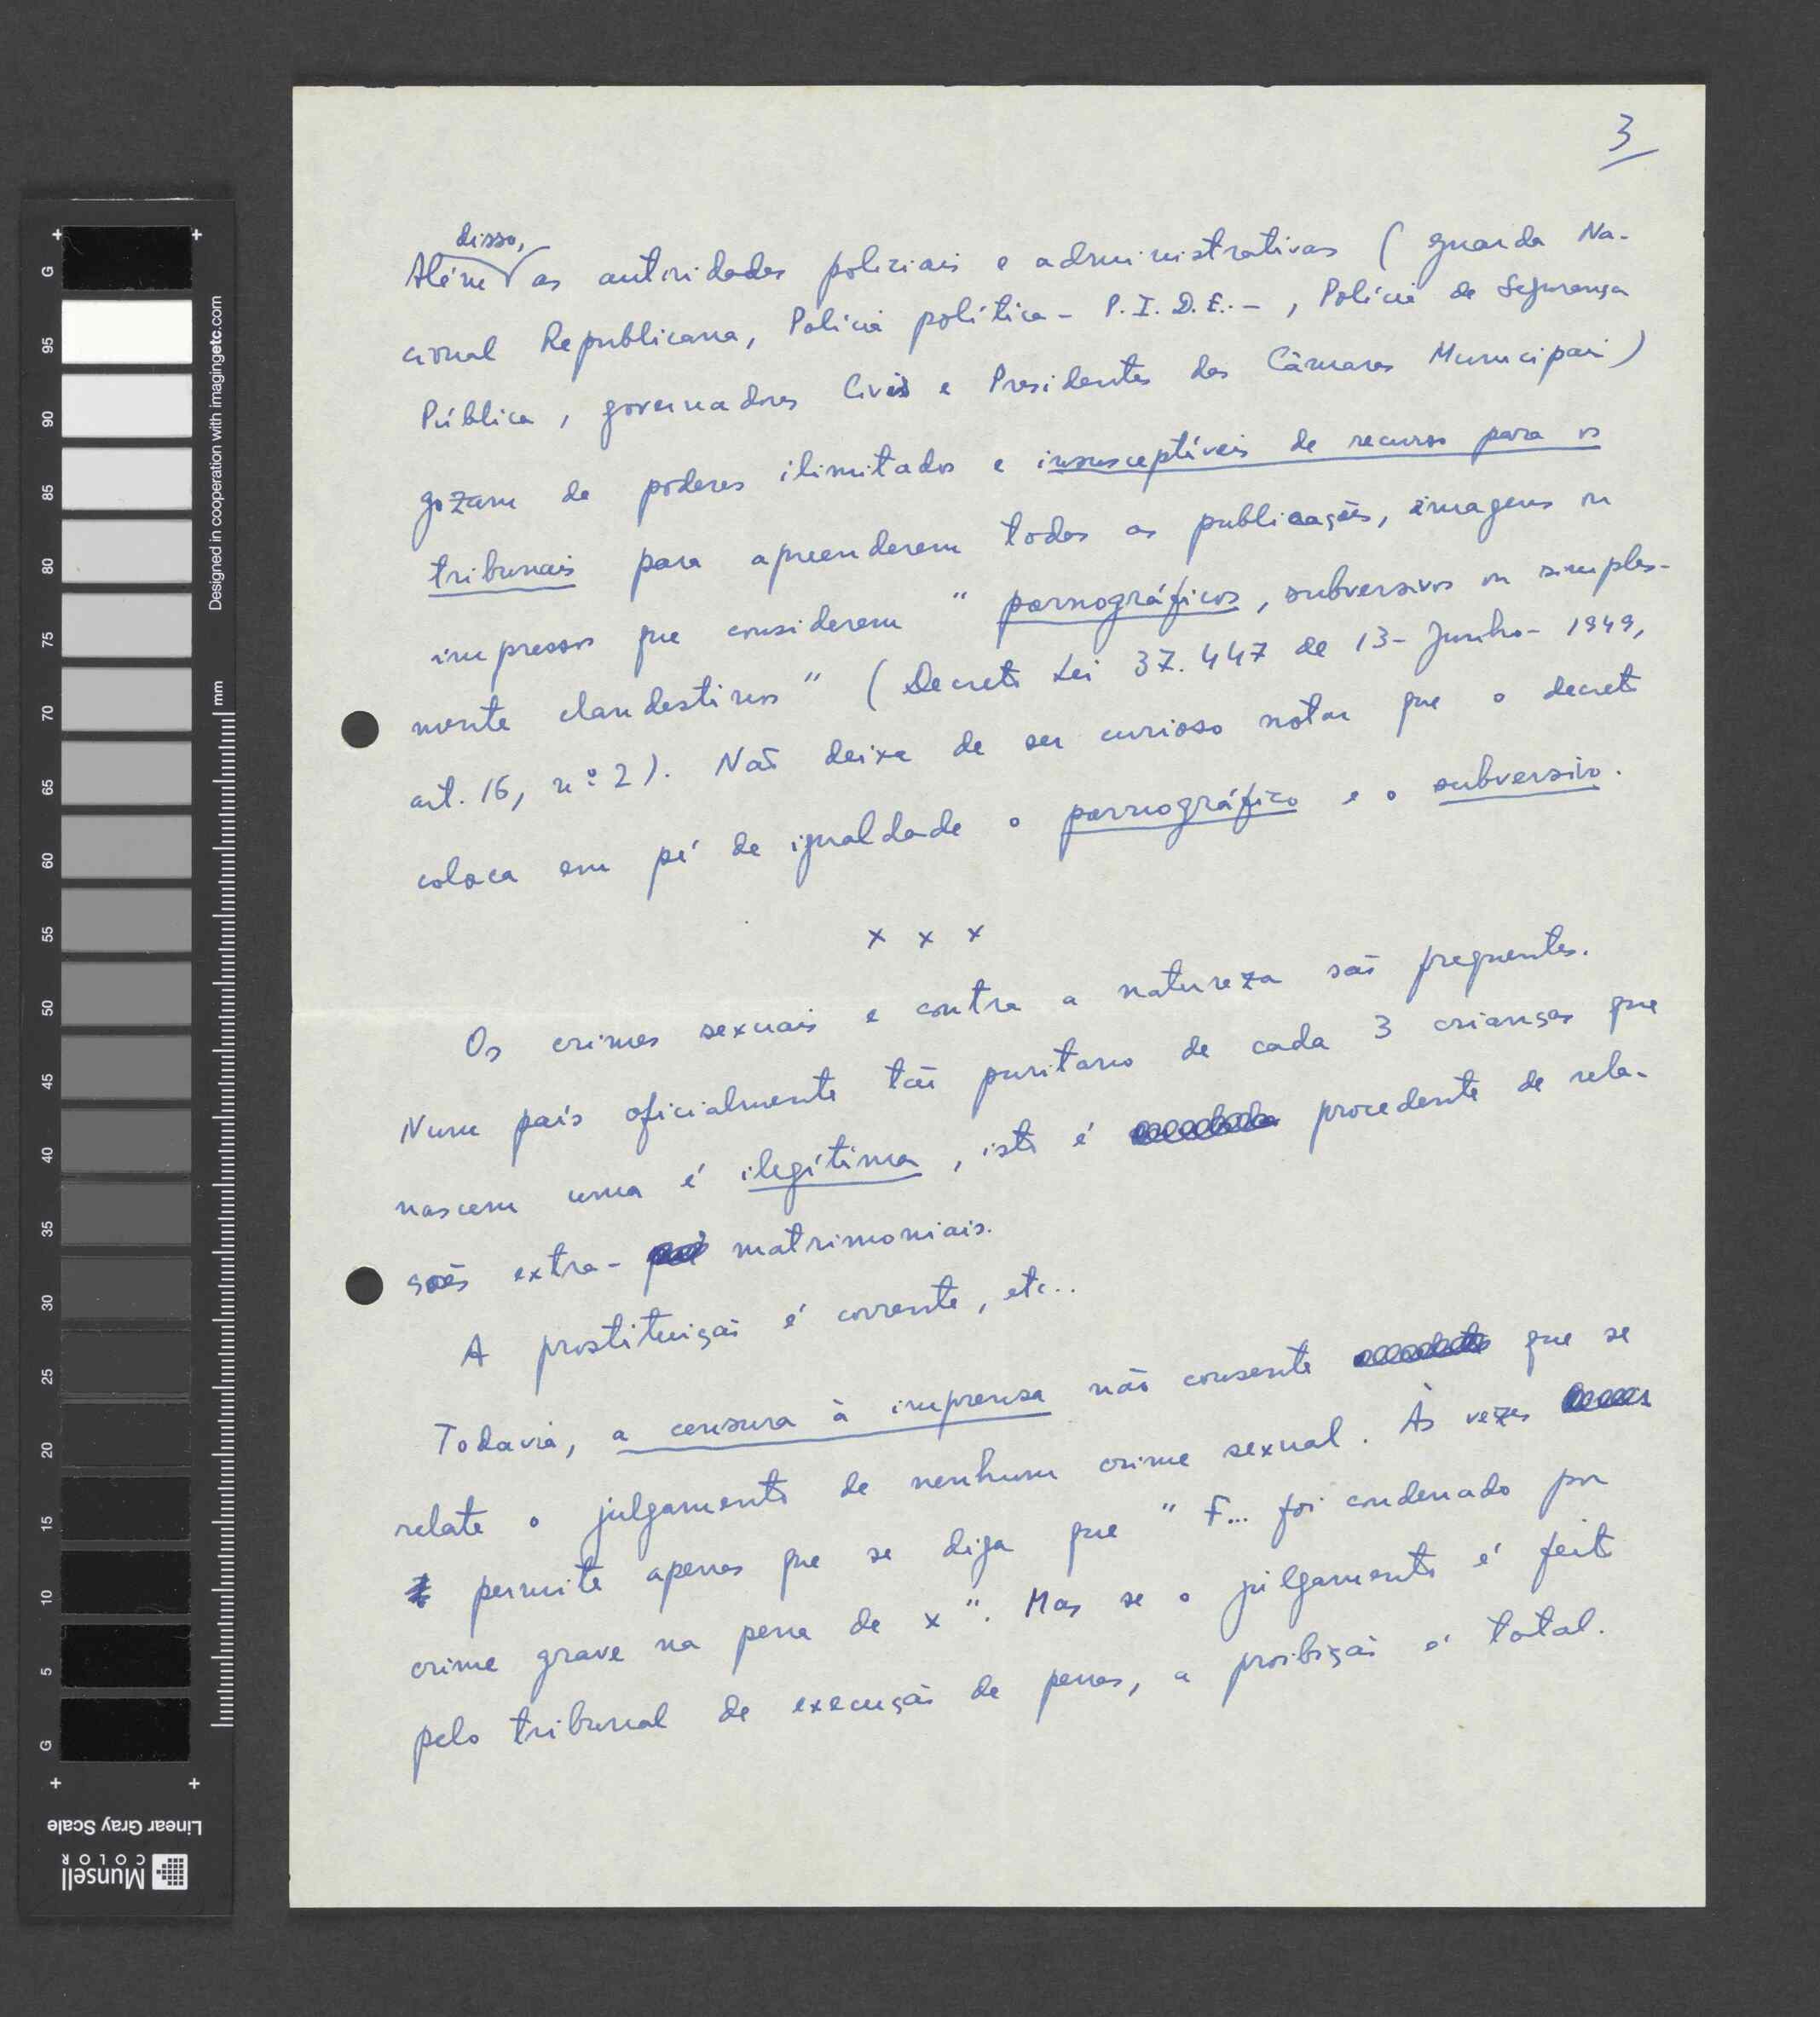 3
disso,
Além as autoridades policiais e administrativas ( guarda Na-
cional Republicana, Polícia política - P.I.D.E. - , Polícia de Segurança
Pública, governadores Civis e Presidentes das Câmaras Municipais)
gozam de poderes ilimitados e insusceptíveis de recurso para os
tribunais para apreenderem todas as publicações, imagens ou
impressos que considerem " pornográficos, subversivos ou simples-
mente clandestinos " ( Decreto Lei 37.447 de 13 - Junho - 1949,
art. 16, nº 2 ). Não deixa de ser curioso notar que o decreto
coloca em pé de igualdade o pornográfico e o subversivo.
x x x
Os crimes sexuais e contra a natureza são frequentes.
Num país oficialmente tão puritano de cada 3 crianças que
nascem uma é ilegítima, isto é procedente de rela-
ções extra- matrimoniais.
A prostituição é corrente, etc..
Todavia, a censura à imprensa não consente que se
relate o julgamento de nenhum crime sexual. Às vezes
permite apenas que se diga que " F... foi condenado por
crime grave na pena de x ". Mas se o julgamento é feito
pelo tribunal de execução de penas, a proibição é total.
G
95
90
85
80
75
70
65
60
55
50
45
40
35
30
25
20
15
10
5
G
Designed in cooperation with imagingetc.com
mm
Linear Gray Scale
Munsell
COLOR